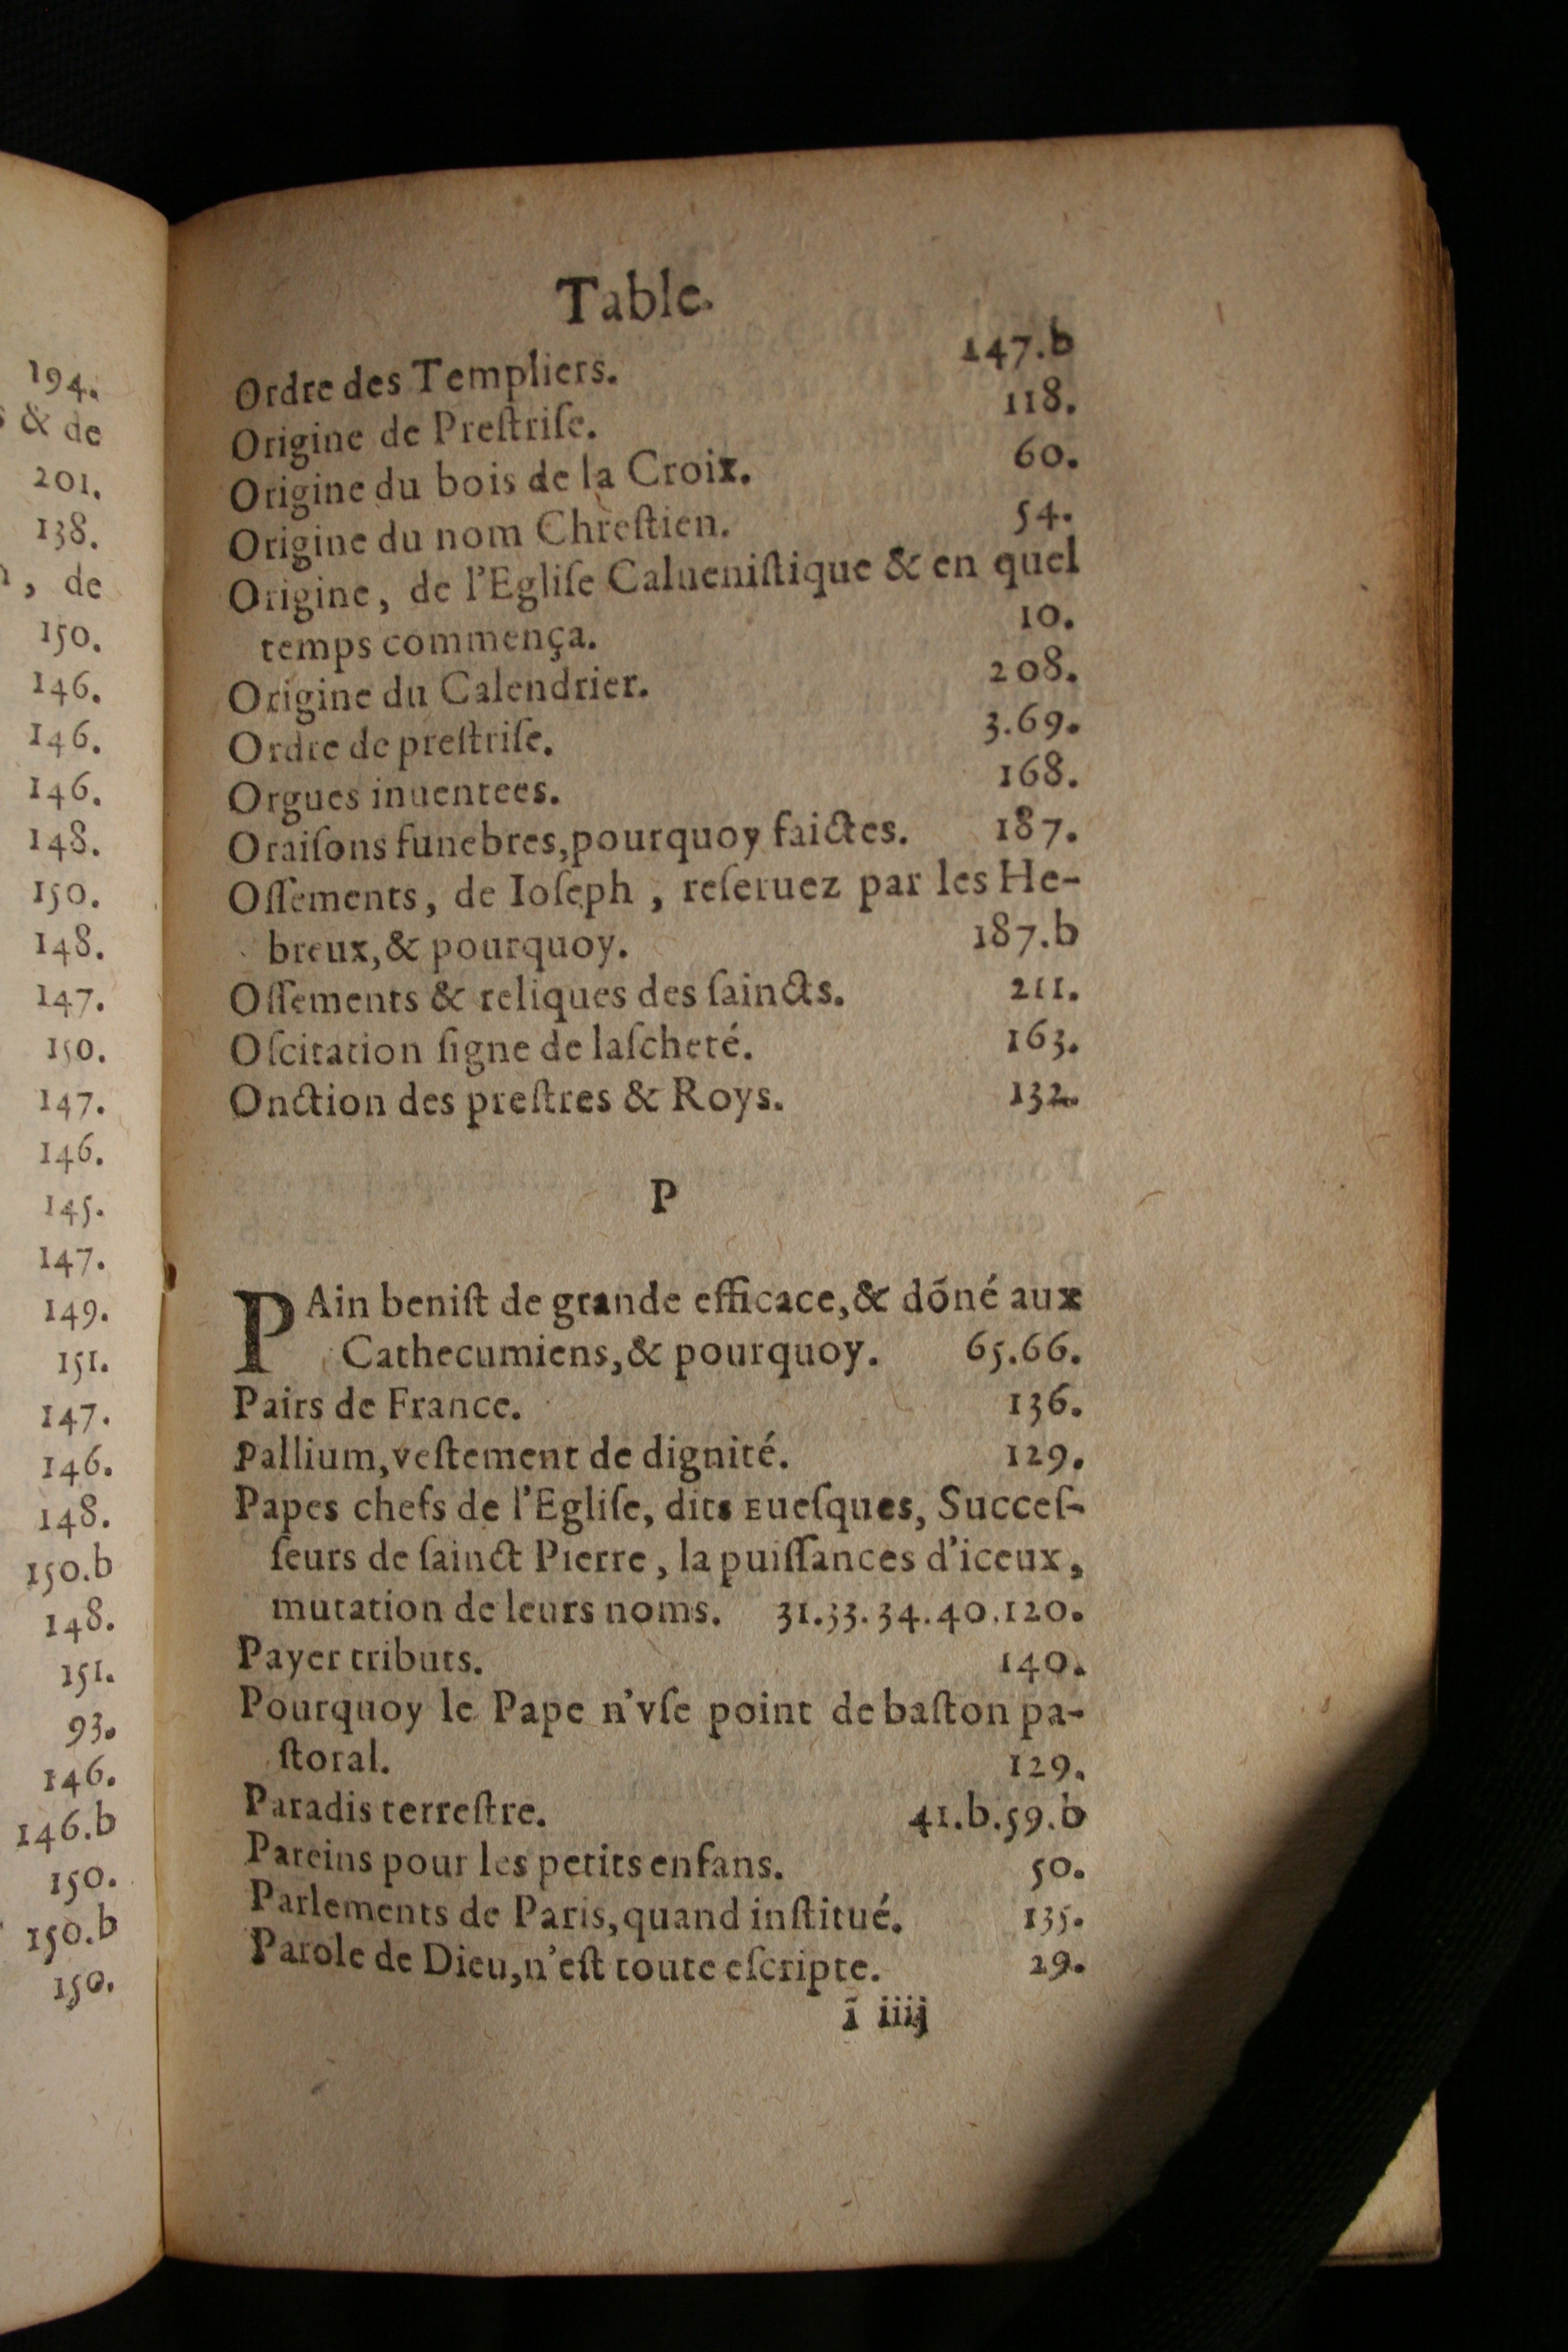 194.
& de
201.
138.
, de
150.
146.
146.
146.
148.
150.
148.
147.
150.
147.
146.
145.
147.
149.
151.
147.
146.
148.
150.b
148.
151.
93.
146.
146.b
150.
150.b
150.
Table.
Ordre des Templiers. 147.b
Origine de Preſtriſe. 118.
Origine du bois de la Croix. 60.
Origine du nom Chreſtien. 54.
Origine, de l'Egliſe Calueniſtique & en quel
temps commença. 10.
Origine du Calendrier. 208.
Ordre de preſtriſe. 3.69.
Orgues inuentees. 168.
Oraiſons funebres,pourquoy faictes. 187.
Oſſements, de Ioſeph , reſeruez par les He-
breux,& pourquoy. 187.b
Oſſements & reliques des ſaincts. 211.
Oſcitation ſigne de laſcheté. 163.
Onction des preſtres & Roys. 132.
P
PAin beniſt de grande efficace,& dõné aux
Cathecumiens,& pourquoy. 65.66.
Pairs de France. 136.
Pallium,veſtement de dignité. 129.
Papes chefs de l'Egliſe, dits Eueſques, Succeſ-
ſeurs de ſainct Pierre , la puiſſances d'iceux,
mutation de leurs noms. 31.33.34.40.120.
Payer tributs. 140.
Pourquoy le Pape n'vſe point de baſton pa-
ſtoral. 129.
Paradis terreſtre. 41.b.59.b
Pareins pour les petits enfans. 50.
Parlements de Paris,quand inſtitué. 135.
Parole de Dieu,n'eſt toute eſcripte. 29.
ĩ iiij